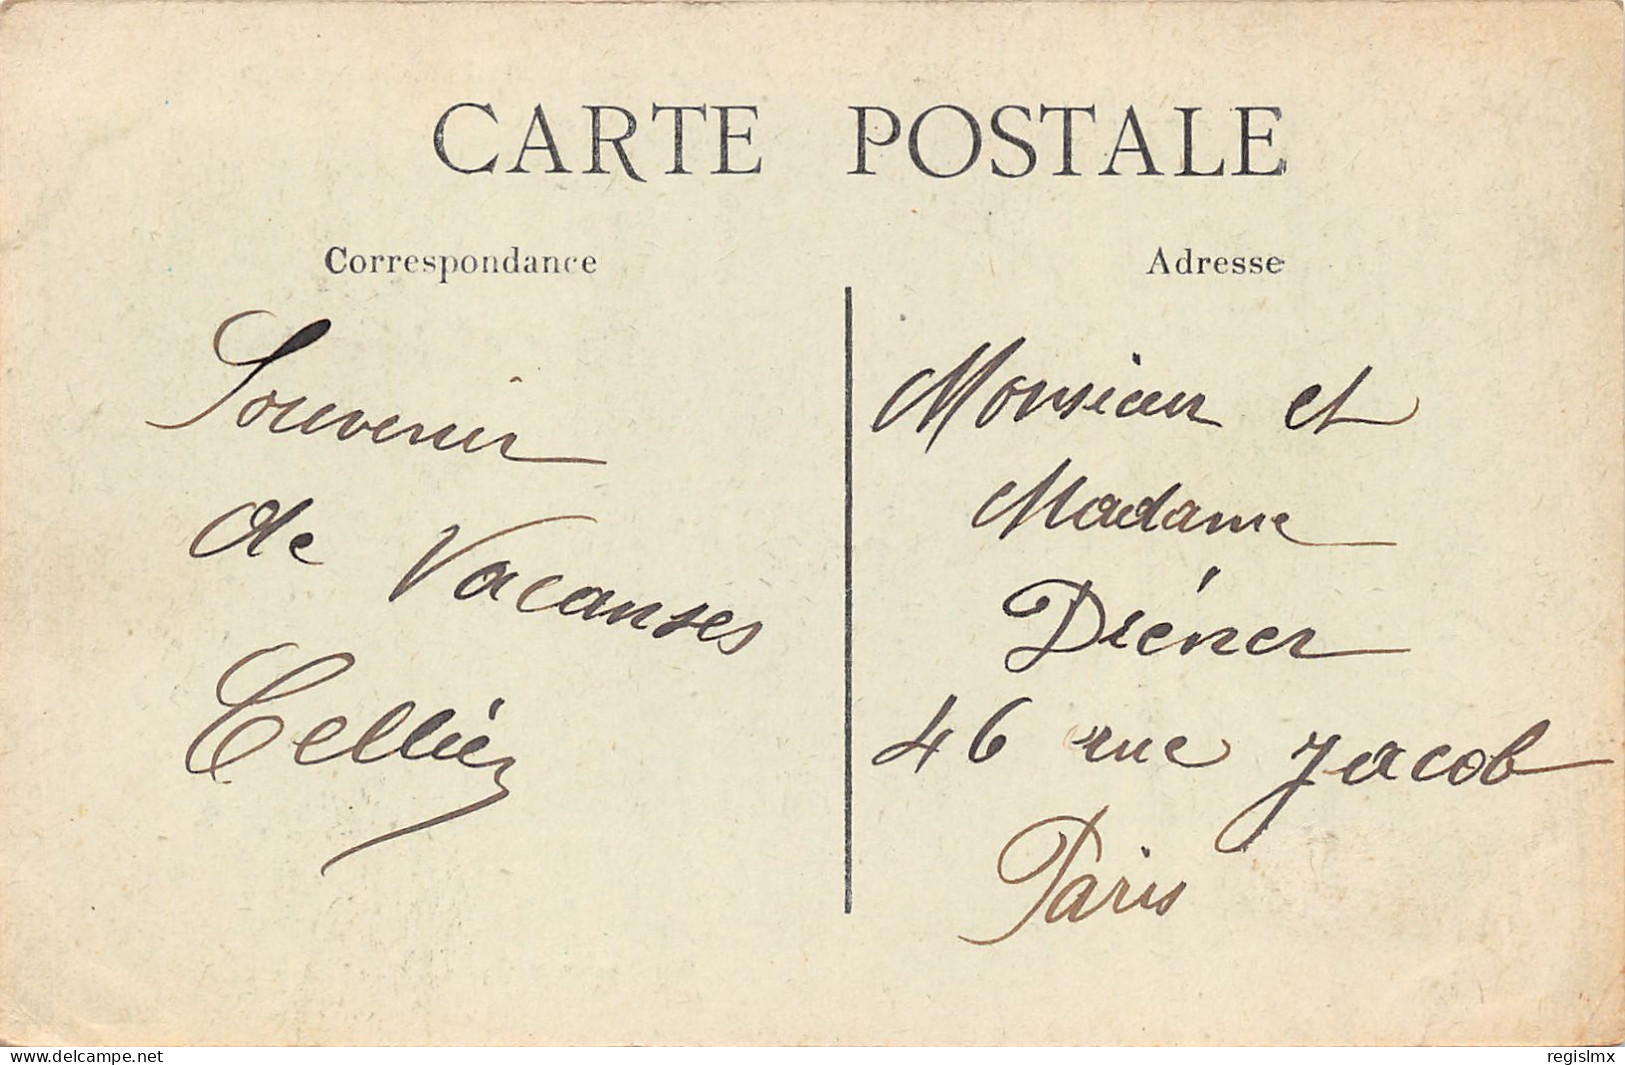 CARTE POSTALE
Correspondance
Souvenir
de Vacanses
Cellier
Adresse
Monsieur et
Madame
Diéner
46 rue Jacob
Paris
www.delcampe.net
regislmx